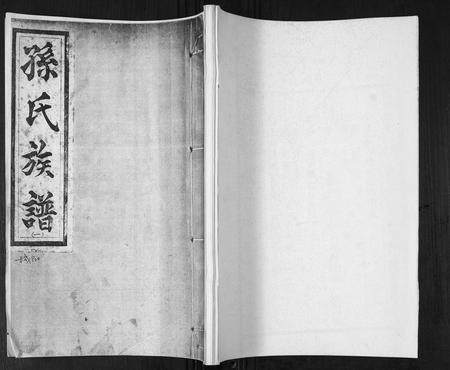 孫氏族譜
(一)